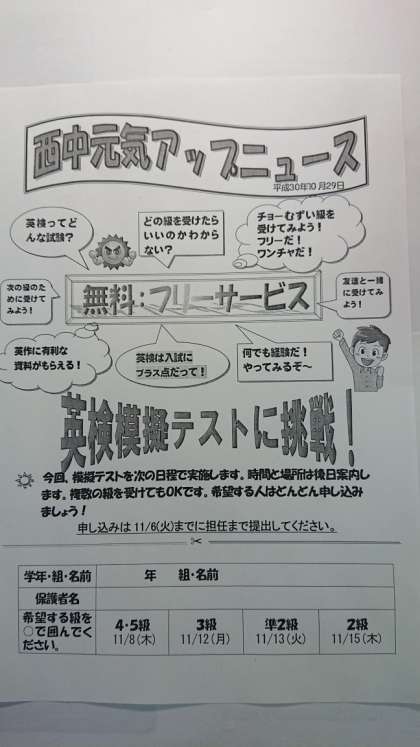 西中元気アップニュース
平成30年10月29日
英検ってど
んな試験？
どの級を受けたら
いいのかわから
ない？
チョーむずい級を
受けてみよう！
フリーだ！
ワンチャだ！
次の級のた
めに受けて
みよう！
無料：フリーサービス
友達と一緒
に受けてみ
よう！
英作に有利な
資料がもらえる！
英検は入試に
プラス点だって！
何でも経験だ！
やってみるぞ～
英検模擬テストに挑戦！
今回、模擬テストを次の日程で実施します。時間と場所は後日案内し
ます。複数の級を受けてもOKです。希望する人はどんどん申し込み
ましょう！
申し込みは 11/6(火)までに担任まで提出してください。
学年・組・名前 年 組・名前
保護者名
希望する級を
○で囲んでく
ださい。
4・5級
11/8(木)
3級
11/12(月)
準2級
11/13(火)
2級
11/15(木)